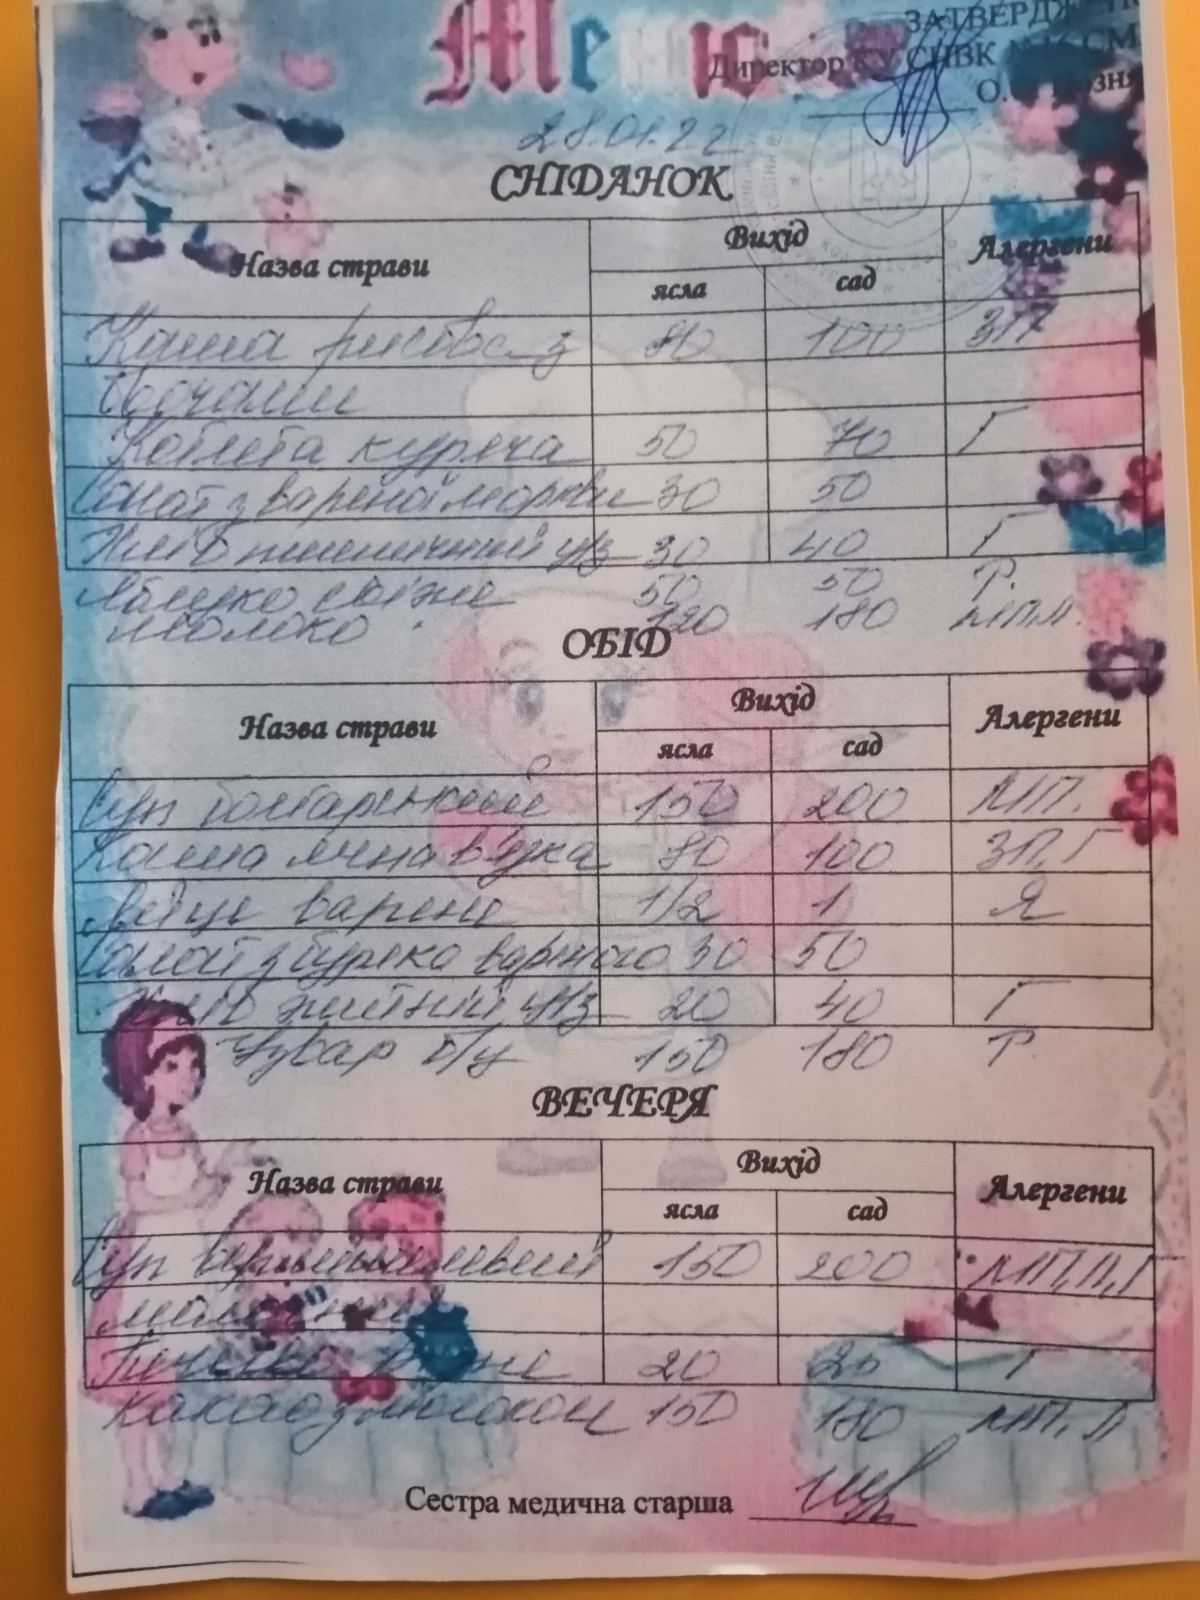 Меню
ЗАТВЕРДЖ
Директор КУ СНВК №16 СМ
О.
28.01.22
СНІДАНОК
Назва страви Вихід Алергени
ясла сад
Каша рисова з 80 100 ЗП
овочами
Котлета куряча 50 70 Г
Салат з вареної моркви 30 50
Хліб пшеничний ц/з 30 40 Г
Яблуко свіже 50 50 Р.
Молоко 120 180 МПМ.
ОБІД
Назва страви Вихід Алергени
ясла сад
Суп болгарський 150 200 МП.
Каша ячна в'язка 80 100 ЗП, Г
Яйце варене 1/2 1 Я
Салат з буряка вареного 30 50
Хліб житній ц/з 20 40 Г
Узвар 150 180 Р
ВЕЧЕРЯ
Назва страви Вихід Алергени
ясла сад
Суп вермішелевий 150 200 МП, Г
молочний
Печиво 20 20 Г
Какао з молоком 150 180 МП,
Сестра медична старша